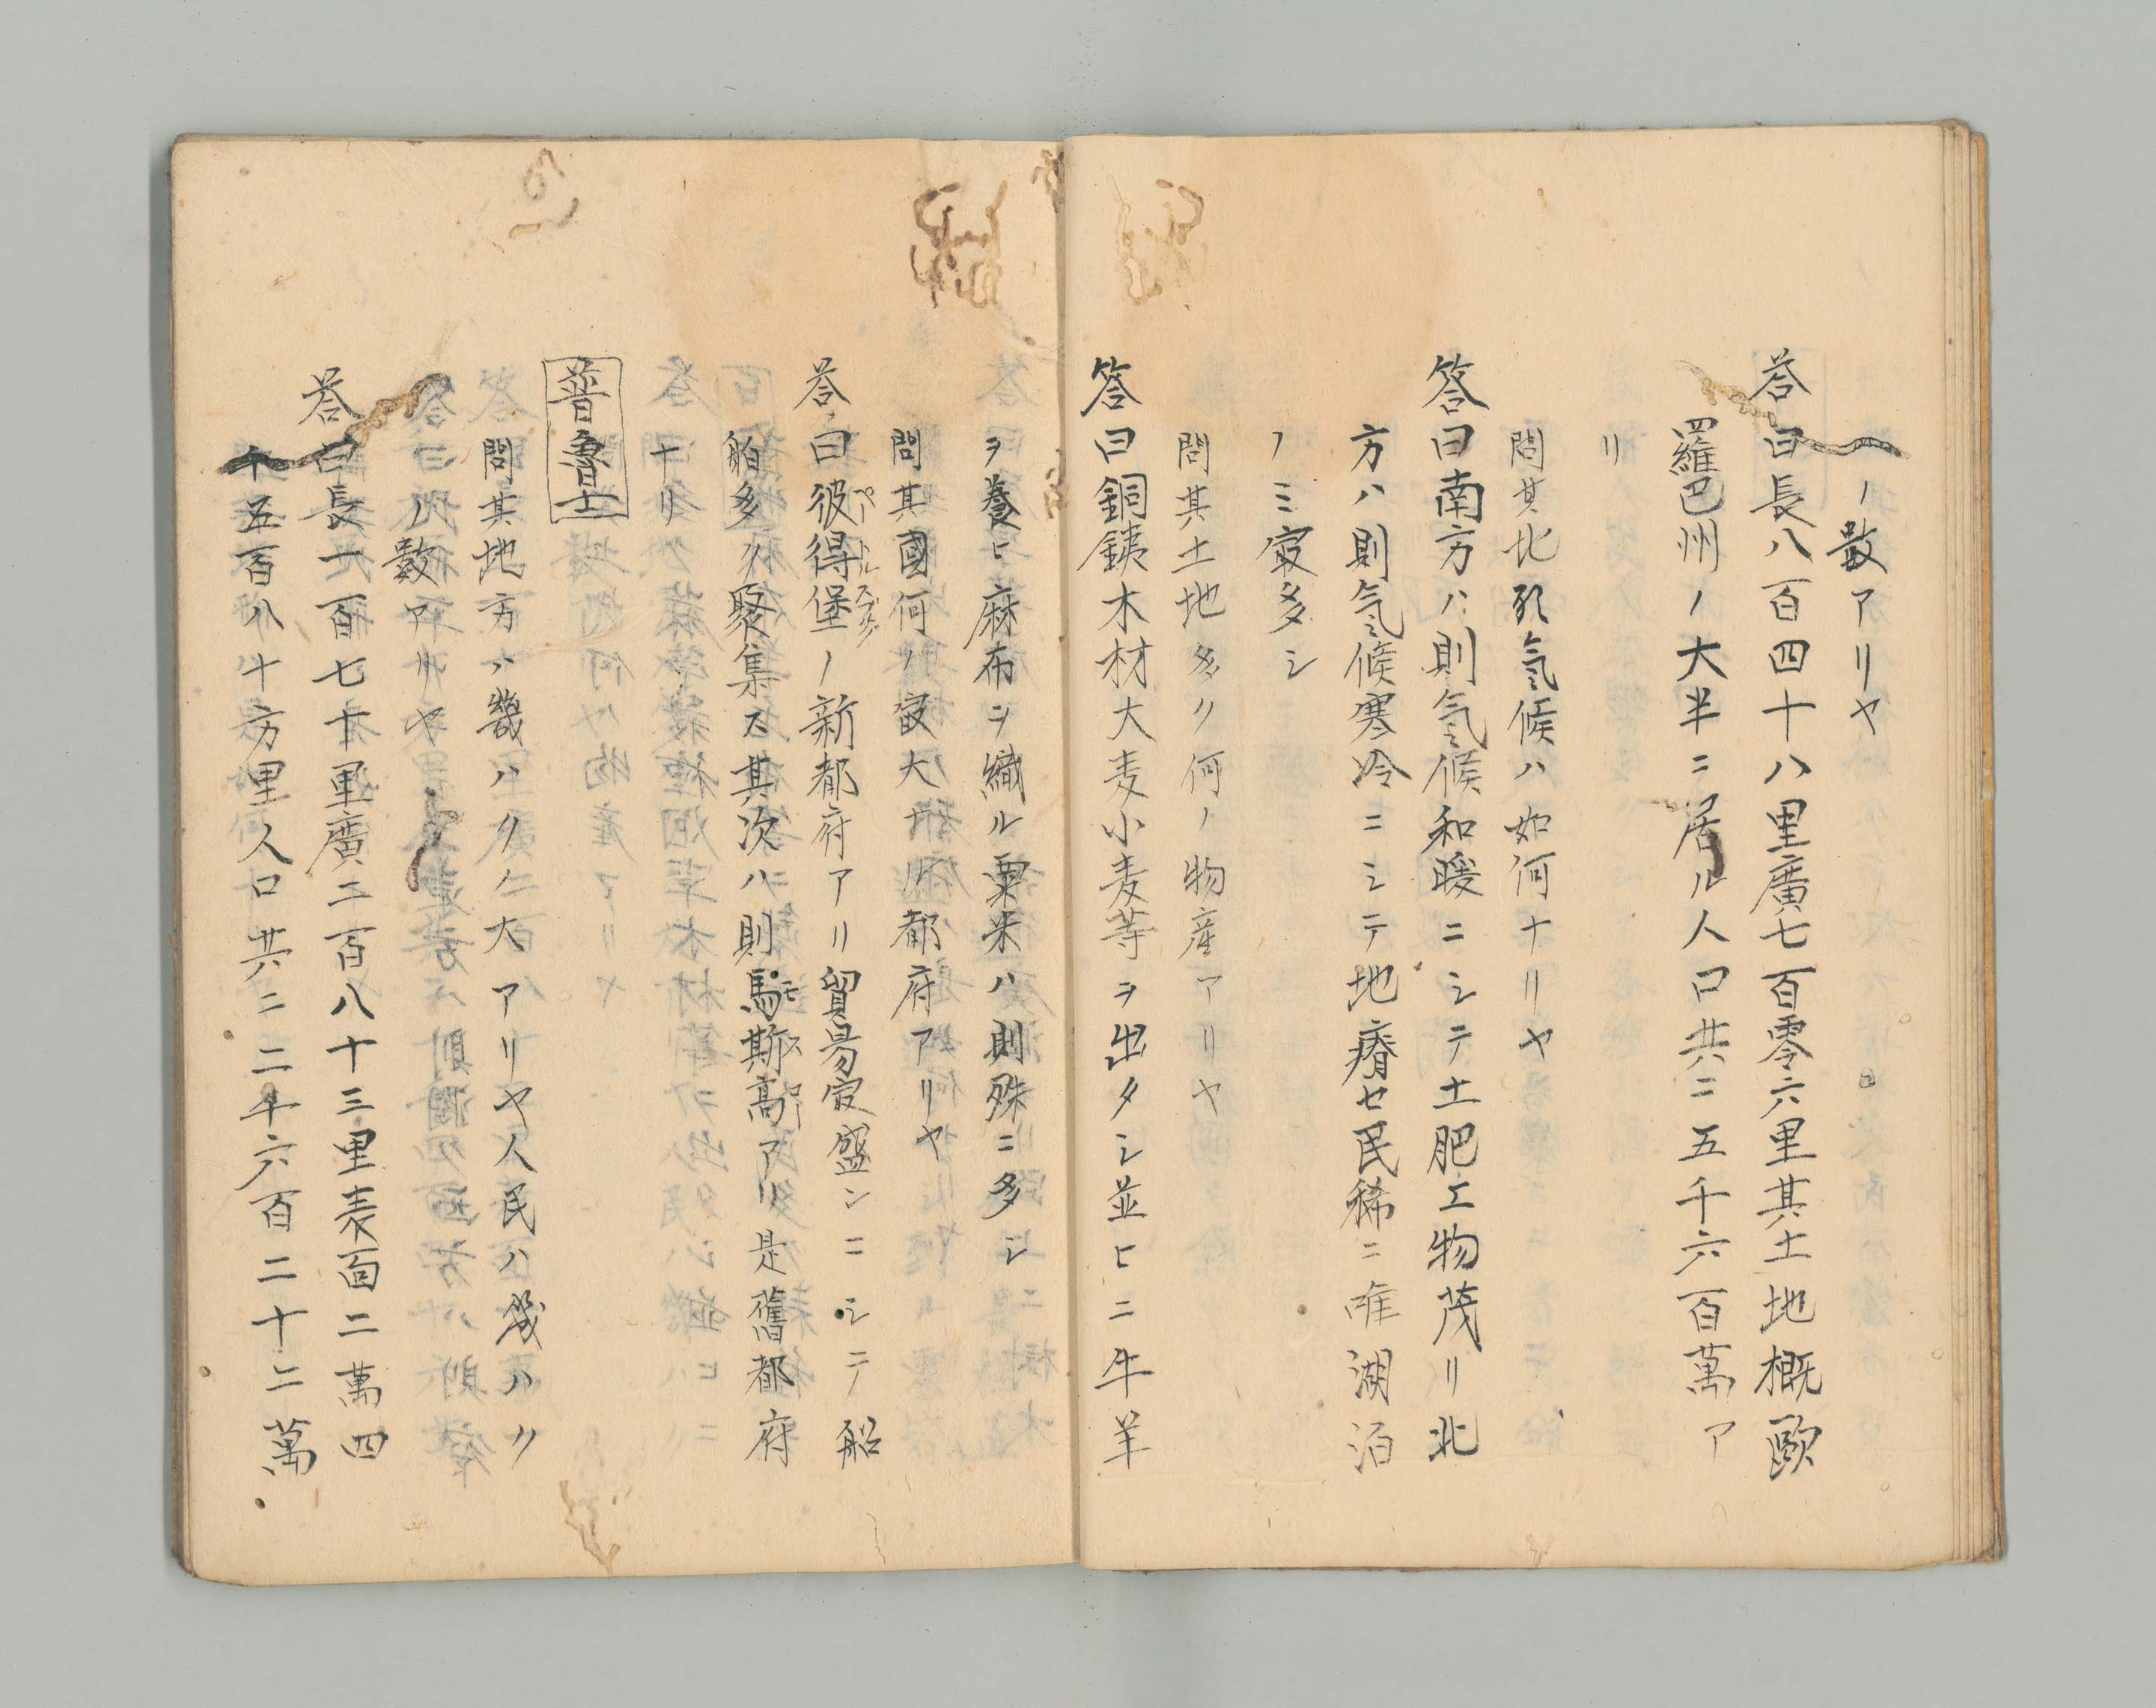 ノ数アリヤ
荅曰長八百四十八里廣七百零六里其土地概歐
羅巴州ノ大半ニ居ル人口共ニ五千六百萬ア
リ
問其地形氣候ハ如何ナリヤ
答曰南方ハ則氣候和暖ニシテ土肥エ物茂リ北
方ハ則気候寒冷ニシテ地瘠セ民稀ニ唯湖泊
ノミ㝡多シ
問其土地多ク何ノ物産アリヤ
答曰銅銕木材大麦小麦等ヲ出タシ並ヒニ牛羊
ヲ養ヒ麻布ヲ織ル粟米ハ則殊ニ多シ
問其國何ノ㝡大ナル都府アリヤ
荅曰彼得堡ノ新都府アリ貿易㝡盛ンニシテ船
舶多ク聚集ス其次ハ則馬斯高アリ是舊都府
ナリ
普魯士
問其地方ハ幾ハクノ大アリヤ人民ハ幾ハク
ノ數アルヤ
荅曰長一百七十里廣二百八十三里表面二萬四
千五百八十方里人口共ニ二千六百二十二萬